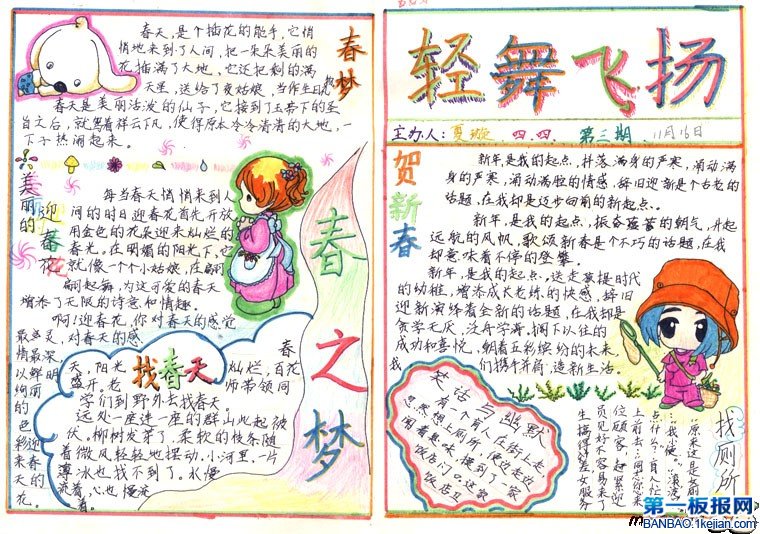 春梦
春天,是个插花的能手,它悄
悄地来到了人间,把一朵朵美丽的
花插满了大地,它还把刻的满
天星,送给了夏姑娘,当作生日礼物
春天是美丽活波的仙子,它接到了玉帝下的圣
旨之后,就驾着祥云下凡,使得原本冷冷清清的大地,一
下子热闹起来。
美丽的
迎春花
每当春天悄悄来到人
间的时日迎春花首先开放
用金色的花朵迎来灿烂的
春光。在明媚的阳光下,它
就像一个个小姑娘,在翩
翩起舞,为这可爱的春天
增添了无限的诗意和情趣。
啊!迎春花,你对春天的感觉
最灵,对春天的感
情最深,
以鲜明
绚丽的
色彩迎来春天的
花。
找春天
春
天,阳光灿烂,百花
盛开。老师带领同
学们到野外去找春天。
远处一座连一座的群山此起彼
伏。柳树发芽了,柔软的枝条随
着微风轻轻地摆动。小河里一片
薄冰也找不到了。水慢
流着,心也慢
着。
春之梦
轻舞飞扬
主办人:夏璇 四.四. 第三期. 11月16日
贺新春
新年,是我的起点,抖落满身的严寒,涌动满
身的严寒,涌动满腔的情感,辞旧迎新是个古老的
话题,在我却是迈步向前的新起点。
新年,是我的起点,振奋蓬蓬的朝气,升起
远航的风帆,歌颂新春是个不巧的话题,在我
却意味着不停的登攀。
新年,是我的起点,送走蒙提时代
的幼稚,增添成长老练的快感,辞旧
迎新演绎着全新的话题,在我却是
贪学无厌,泛舟学海,搁下以往的
成功和喜悦,朝着五彩缤纷的未来,
我们携手并肩,造新生活。
笑话与幽默
有一个盲人在街上走
忽然想上厕所,便边走边
用着鼻味,摸到了一家
饭店门口,这家
饭店卫
生搞得差,女服务
员见好不容易来了
位顾客,赶紧迎
上前去:
找厕所
第一板报网
BANBAO.1kejian.com